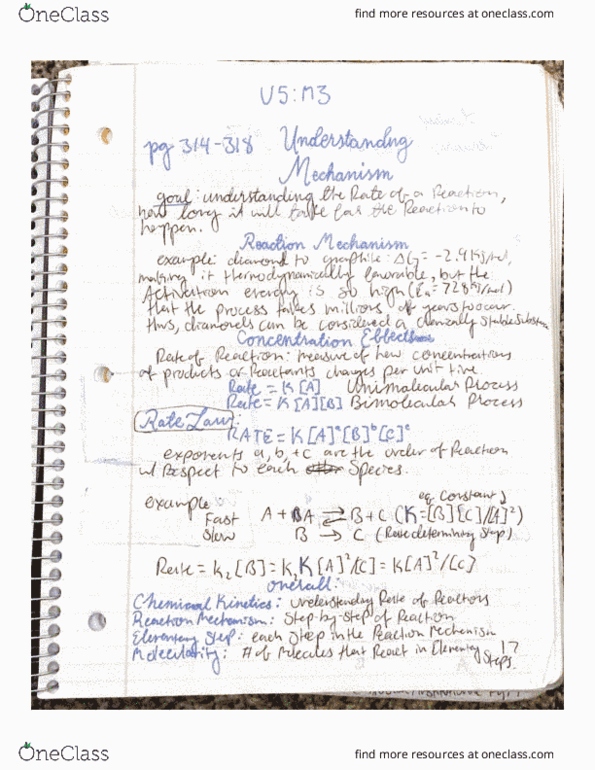 OneClass
find more resources at oneclass.com
U5:M3
pg 314-318 Understanding
Mechanism
goal: understanding the Rate of a Reaction,
how long it will take for the Reaction to
happen.
Reaction Mechanism
example: diamond to graphite: ΔG = -2.9 KJ/mol,
making it thermodynamically favorable, but the
Activation energy is so high (Ea = 728 KJ/mol)
that the process takes millions of years to occur.
thus, diamonds can be considered a chemically stable substance
Concentration Effects
Rate of Reaction: measure of how concentrations
of products or Reactants changes per unit time.
Rate = K[A] Unimolecular Process
Rate = K[A][B] Bimolecular Process
Rate Law:
RATE = K[A]ᵃ[B]ᵇ[C]ᶜ
exponents a, b, + c are the order of Reaction
w/ Respect to each Species.
example eq. constant
Fast A + A ⇌ B + C (K=[B][C]/[A]²)
Slow B → C (Rate determining step)
Rate = k₂[B] = k, K[A]²/[C] = K[A]²/[C]
overall:
Chemical Kinetics: understanding Rate of Reactions
Reaction Mechanism: Step-by-step of Reaction
Elementary Step: each Step in the Reaction Mechanism
Moleculatity: # of Molecules that React in Elementary Steps
17
OneClass
find more resources at oneclass.com